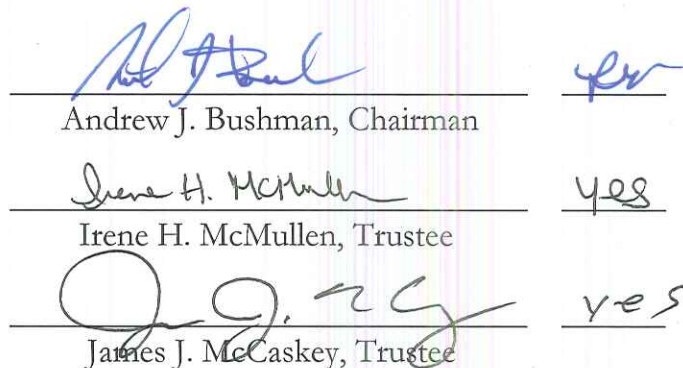 yes
Andrew J. Bushman, Chairman
Irene H. McMullen yes
Irene H. McMullen, Trustee
yes
James J. McCaskey, Trustee